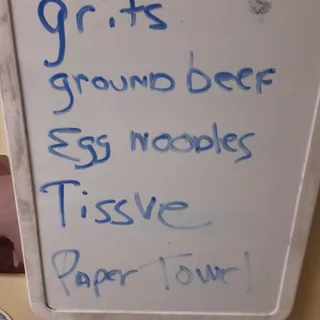 grits
ground beef
Egg Noodles
Tissue
Paper Towel